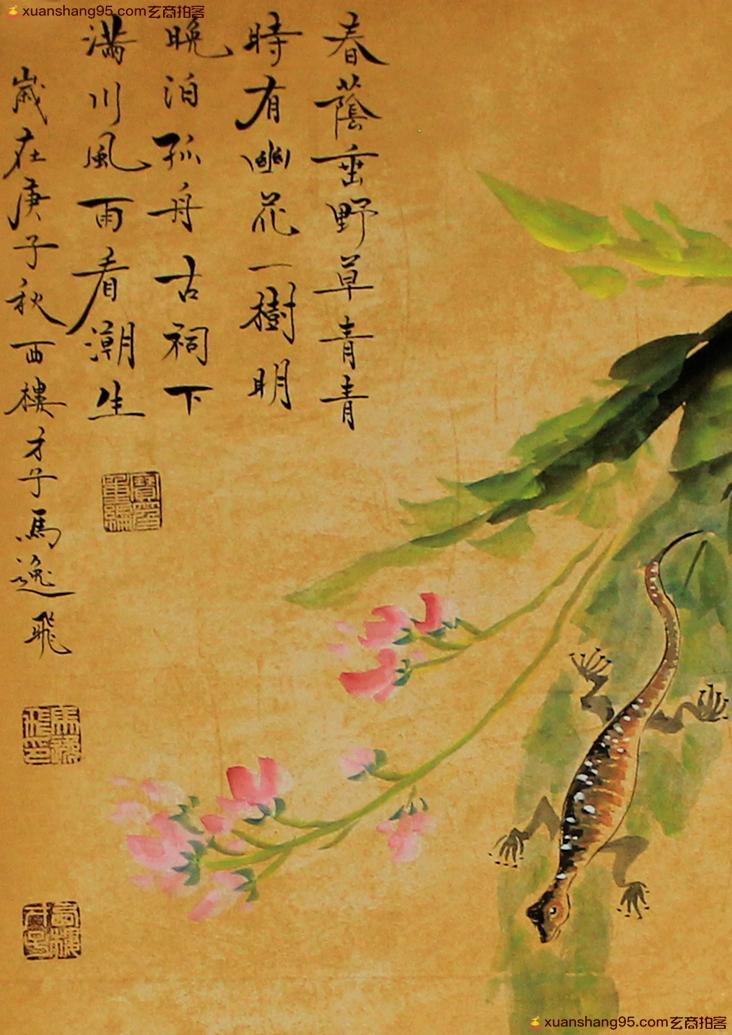 xuanshang95.com玄商拍客
春蔭垂野草青青
時有幽花一樹明
晚泊孤舟古祠下
滿川風雨看潮生
歲在庚子秋西樓才子馬逸飛
xuanshang95.com玄商拍客